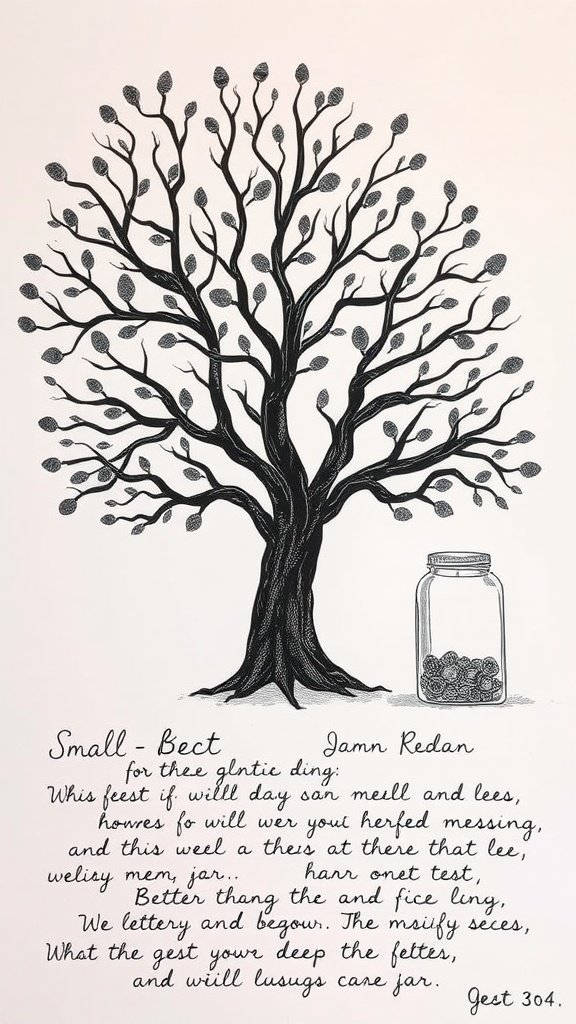 Small - Bect Jamn Redan
for thee glntic ding:
Whis feest if. willl day san mell and lees,
howres fo will wer youl herfed messing,
and this weel a thers at there that lee,
welisy mem, jar.. harr onet test,
Better thang the and fice lcng,
We lettery and begow.. The msiify seces,
What the gest yowr deep the feltes,
and wiill lusugs care jar.
Gest 304.